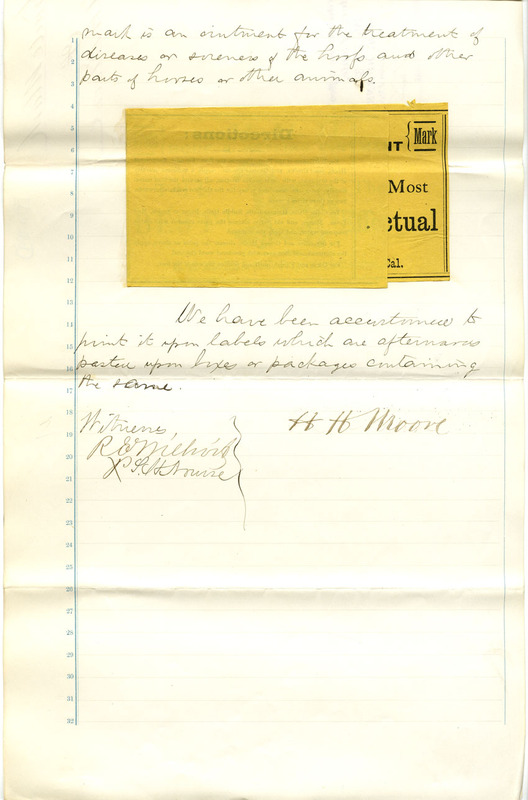 mark is an ointment for the treatment of
diseases or soreness of the hoofs and other
parts of horses or other animals.
Directions:
NT { Mark
Most
ctual
Cal.
We have been accustomed to
print it upon labels which are afterwards
pasted upon boxes or packages containing
the same.
Witness,
H H Moore
1
2
3
4
5
6
7
8
9
10
11
12
13
14
15
16
17
18
19
20
21
22
23
24
25
26
27
28
29
30
31
32